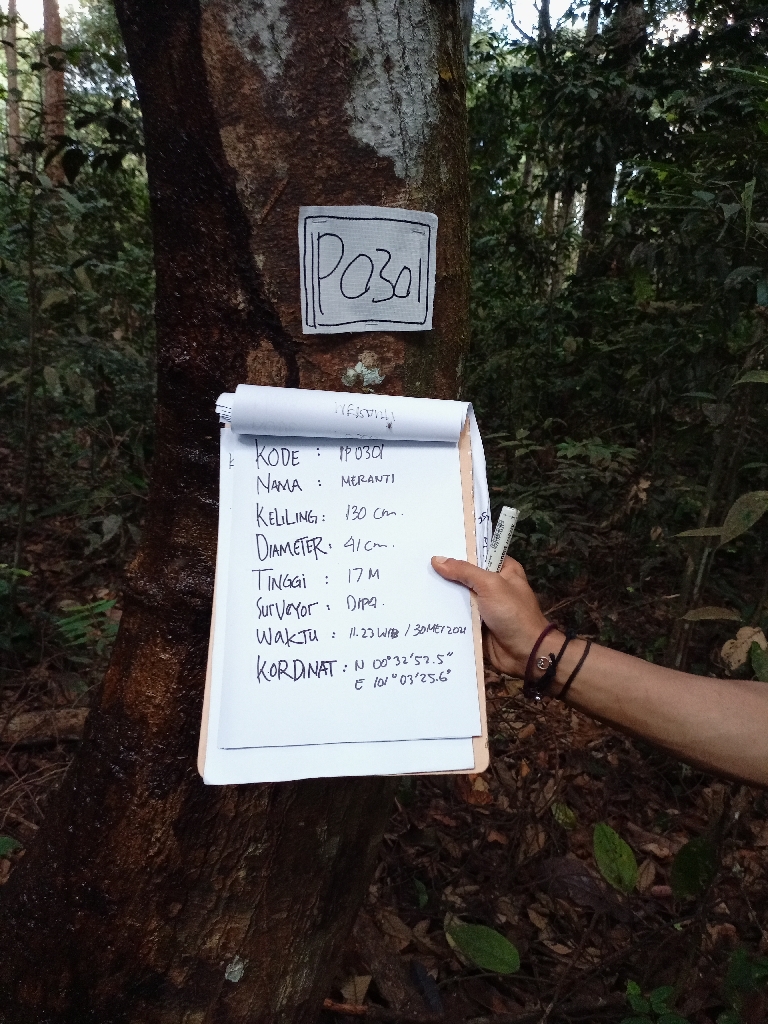 IP0301
KODE : IP0301
NAMA : MERANTI
KELILING : 130 cm.
DIAMETER : 41 cm.
TINGGI : 17 M
SURVEYOR : DIPA.
WAKTU : 11.23 WIB / 30 MEI 2021
KORDINAT : N 00°32'52.5"
E 101°03'25.6"